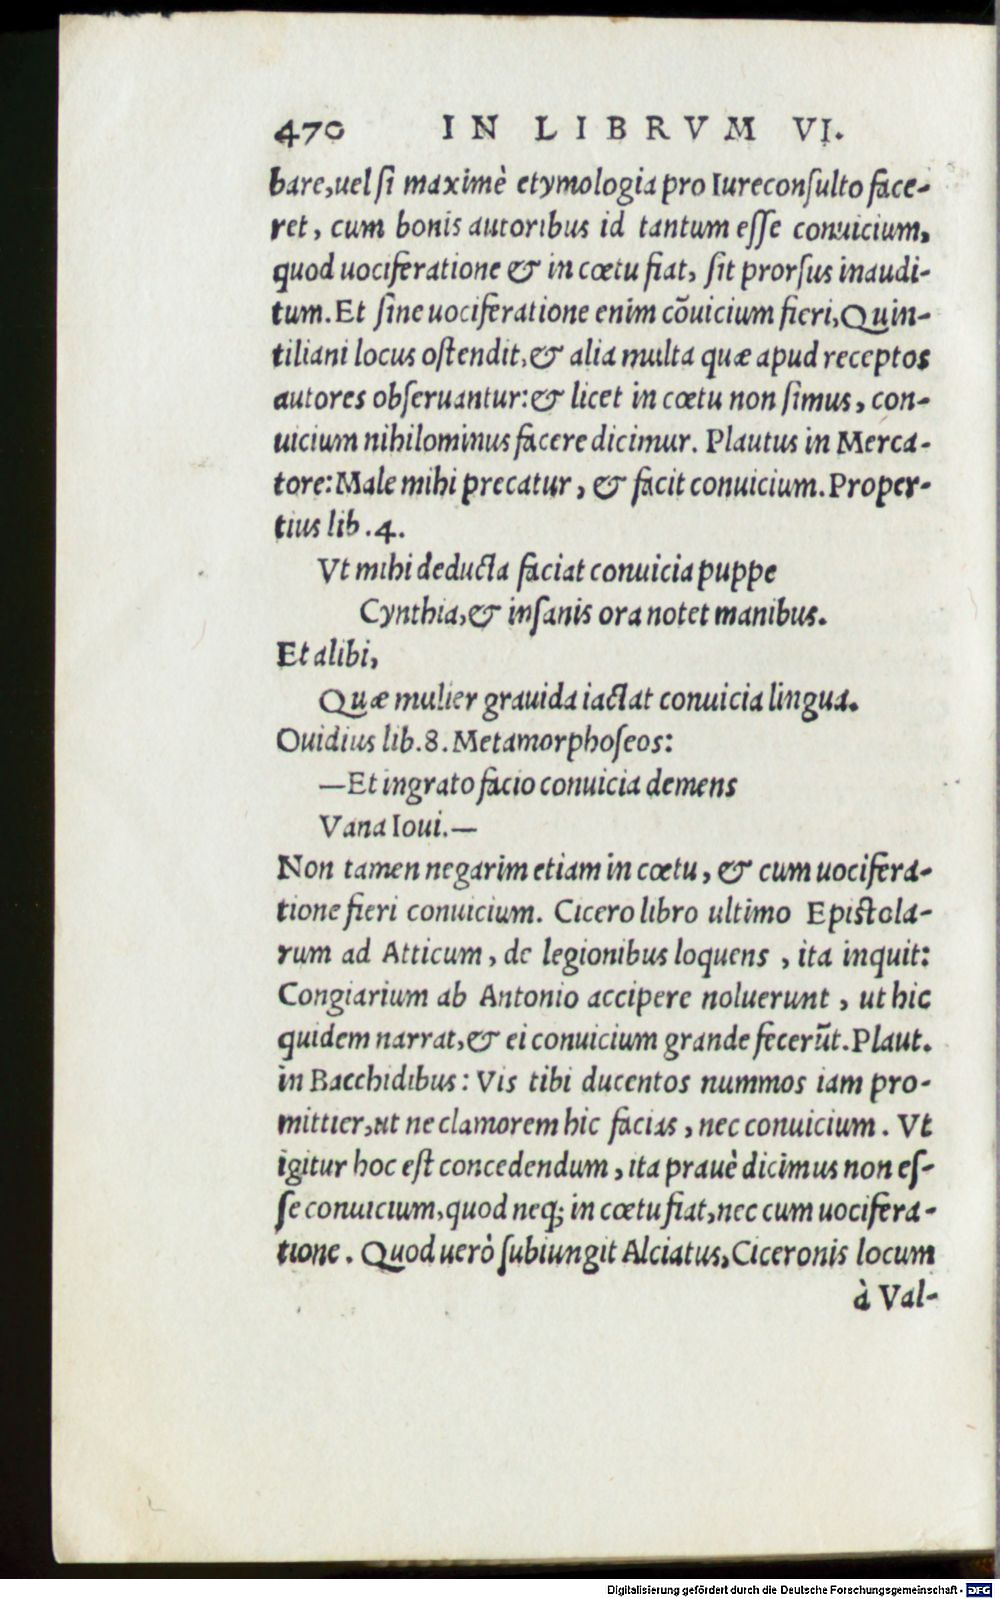 470 IN LIBRVM VI.
bare, uel si maximè etymologia pro Iureconsulto face-
ret, cum bonis autoribus id tantum esse conuicium,
quod uociferatione & in cœtu fiat, sit prorsus inaudi-
tum. Et sine uociferatione enim cōuicium fieri, Quin-
tiliani locus ostendit, & alia multa quæ apud receptos
autores obseruantur: & licet in cœtu non simus, con-
uicium nihilominus facere dicimur. Plautus in Merca-
tore: Male mihi precatur, & facit conuicium. Proper-
tius lib.4.
Vt mihi deducta faciat conuicia puppe
Cynthia, & insanis ora notet manibus.
Et alibi,
Quæ mulier grauida iactat conuicia lingua.
Ouidius lib.8. Metamorphoseos:
—Et ingrato facio conuicia demens
Vana Ioui.—
Non tamen negarim etiam in cœtu, & cum uocifera-
tione fieri conuicium. Cicero libro ultimo Epistola-
rum ad Atticum, de legionibus loquens, ita inquit:
Congiarium ab Antonio accipere noluerunt, ut hic
quidem narrat, & ei conuicium grande fecerūt. Plaut.
in Bacchidibus: Vis tibi ducentos nummos iam pro-
mittier, ut ne clamorem hic facias, nec conuicium. Vt
igitur hoc est concedendum, ita prauè dicimus non es-
se conuicium, quod neq; in cœtu fiat, nec cum uocifera-
tione. Quod uerò subiungit Alciatus, Ciceronis locum
à Val-
Digitalisierung gefördert durch die Deutsche Forschungsgemeinschaft - DFG